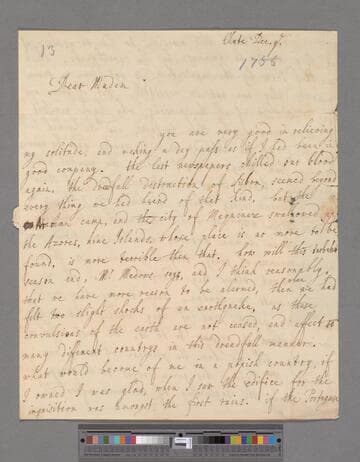 13
Clate Dec. 9.
1755
Dear Madam
you are very good in relieving
my solitude, and making a day pass as if I had been in
good company. the last newspapers chilled our blood
again, the dreadfull distruction of Lisbon, seemed beyond
every thing we had heard of that kind, but the
camp, and the city of swallowed up
the Azores, nine Islands, whose place is no more to be
found, is more terrible then that. how will this
season end, Mr Meadows says, and I think reasonably,
that we have more reason to be alarmed, then when we had
felt two slight shocks of an earthquake, as these
convulsions of the earth are not ceased, and affect so
many different countrys in this dreadfull manner.
what would become of me in a popish country, if
I owned I was glad, when I saw the edifice for the
inquisition was amongst the first ruins. if the Portuguese